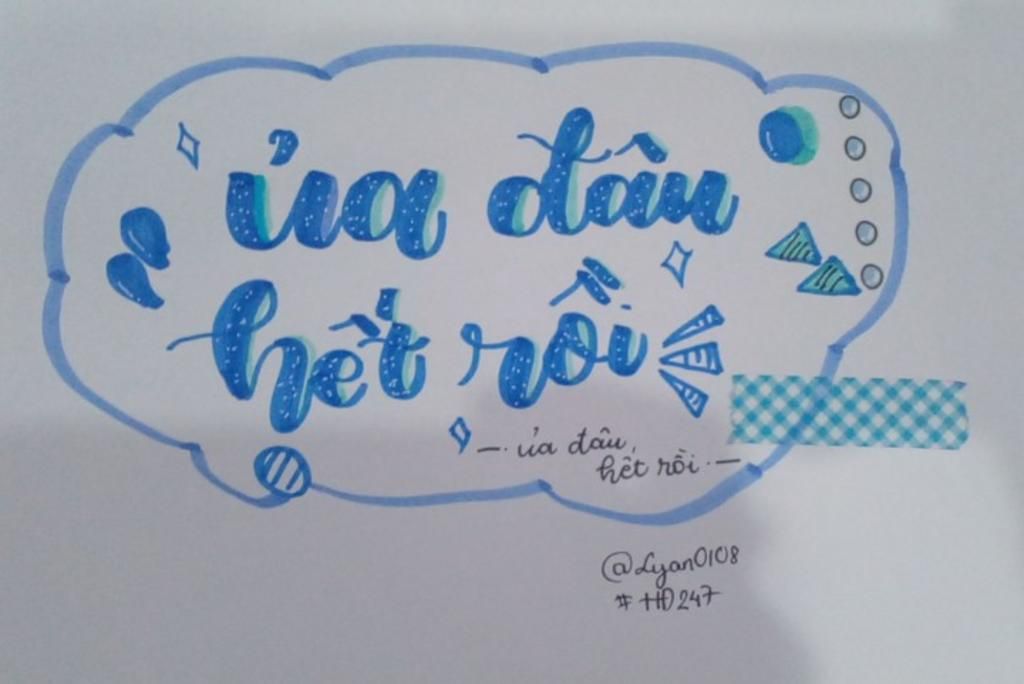 ủa đâu
hết rồi
—. ủa đâu,
hết rồi. —
@Lyan0108
#HD247